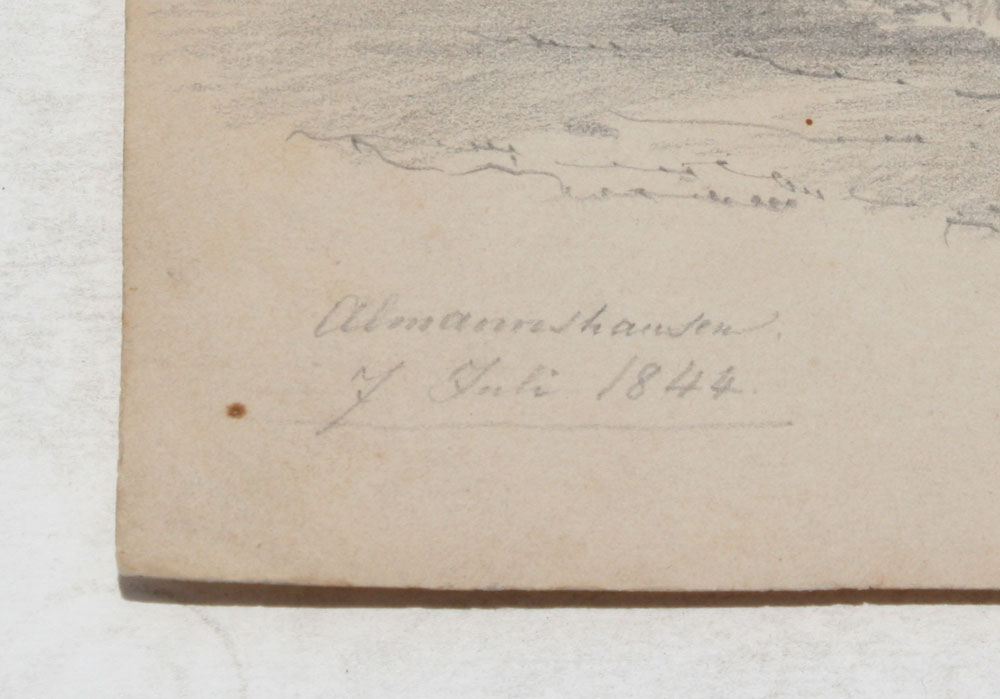 Almannshausen.
7 Juli 1844.